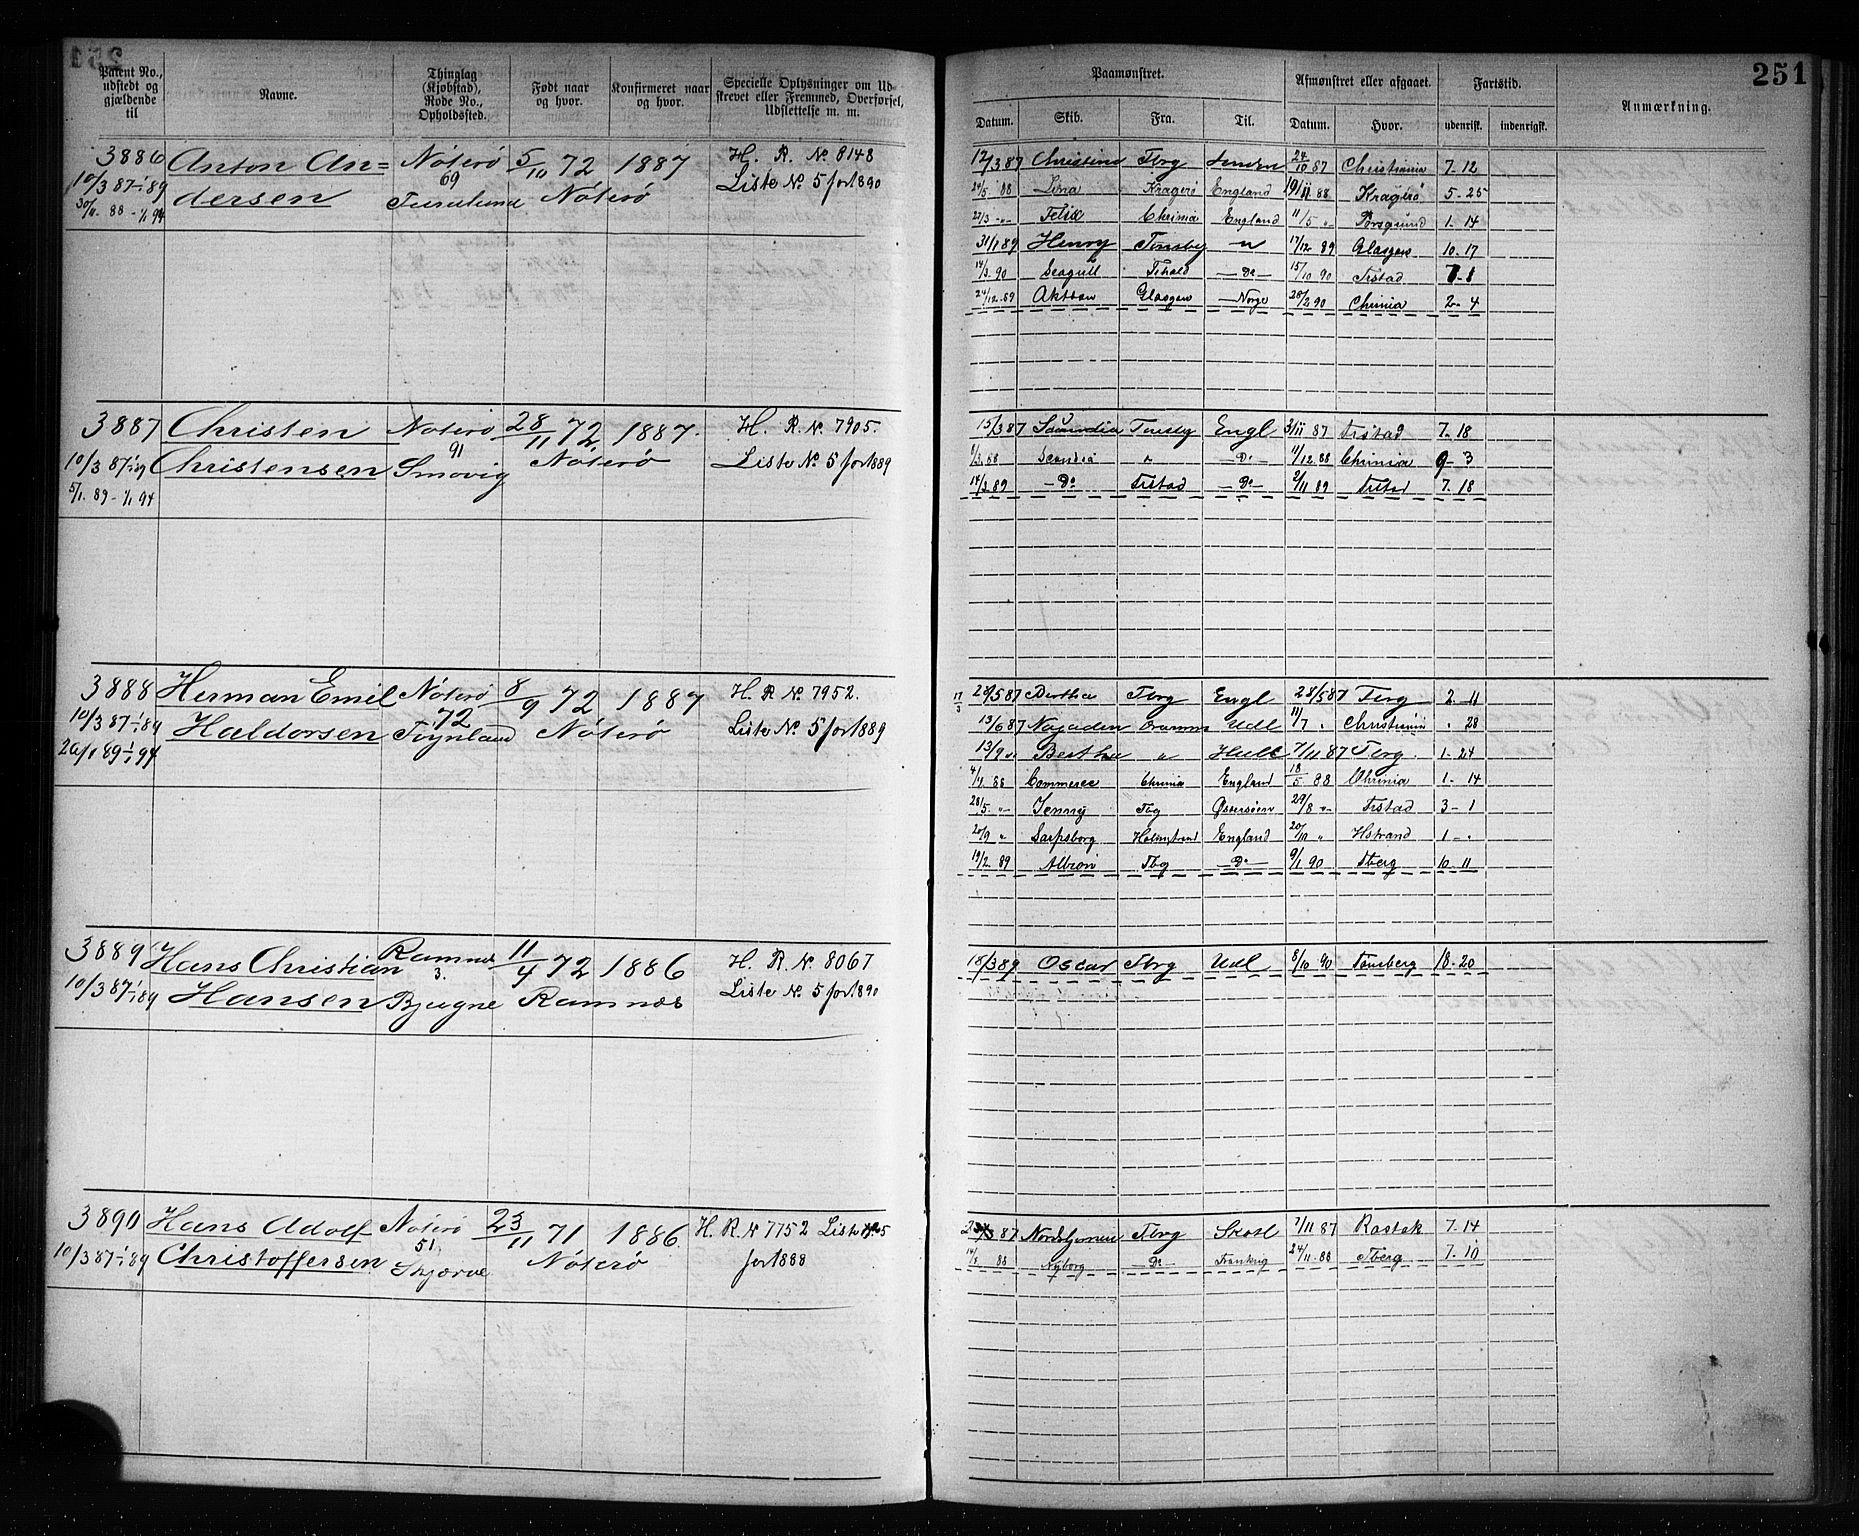 251
Patent No., udstedt og gjældende til
Navne.
Thinglag (Kjøbstad), Rode No., Opholdssted.
Født naar og hvor.
Konfirmeret naar og hvor.
Specielle Oplysninger om Udskrevet eller Fremmed, Overførsel, Udslettelse m. m.
Paamønstret.
Afmønstret eller afgaaet.
Fartstid.
Anmærkning.
Datum. Skib. Fra. Til. Datum. Hvor. udenrigsk. indenrigsk.
3886 Anton An= Nøterø 5/10 72 1887 H. R. No 8148
10/3 87-1/1 89 dersen 69 Nøterø Liste No 5 for 1890
30/11 88 - 1/1 94
12/3 87 Christine Tbrg London 24/10 87 Christiania 7-12
24/5 88 Lina Kragerø England 19/11 88 Kragerø 5-25
22/3 -"- Felix Chrinia England 11/5 " Porsgrund 1-14
31/1 89 Henry Tonsbg -"- 17/12 89 Glasgow 10-17
14/3 90 Seagull Fshald - Do - 15/10 90 Frstad 7-1
24/12 89 Glasgow - Norge 28/2 90 Chrinia 2-4
3887 Christen Nøterø 28/11 72 1887. H. R. No 7905.
10/3 87-1/1 89 Christensen 91 Smovig Nøterø Liste No 5 for 1889
5/1 89 - 1/1 94
15/3 87 Scandia Tonsbg Engl 3/11 87 Frstad 7-18
1/3 88 Scandia " - Do - 11/12 88 Chrinia 9-3
14/3 89 - Do - Frstad - Do - 2/11 89 Frstad 7-18
3888 Herman Emil Nøterø 8/9 72 1887 H. R. No 7952.
10/3 87-1/1 89 Haldorsen 72 Føynland Nøterø Liste No 5 for 1889
20/1 89-1/1 94
17/3 Bertha Tbrg Engl 28/5 87 Tbrg 2-11
13/6 87 Najaden Dramm Udl 11/7 " Christiania " 28
13/9 " Bertha " Hull 7/11 87 Tbrg. 1-24
4/4 88 Commerce Chrinia England 18/5 88 Chrinia 1-14
28/5 -"- Jenny Tbg Østersøen 29/8 -"- Frstad 3-1
20/9 " Sarpsborg Holmstrand England 20/10 " Hstrand 1-"
19/2 89 Albion Tbg - Do - 9/1 90 Tberg 10-11
3889 Hans Christian Ramnæs 11/4 72 1886 H. R. No 8067
10/3 87-1/1 89 Hansen 3. Bjugne Ramnæs Liste No 5 for 1890
18/3 89 Oscar Tbrg Udl 8/10 90 Tønsberg 18-20
3890 Hans Adolf Nøterø 23/11 71 1886. H. R. No 7752 Liste No 5
10/3 87-1/1 89 Christoffersen 51, Skjærve Nøterø for 1888
Nordstjernen Tbrg Skotl 7/11 87 Rostok 7-14
88 Nyborg - Do - Frankrig 24/11 88 Tberg 7-10